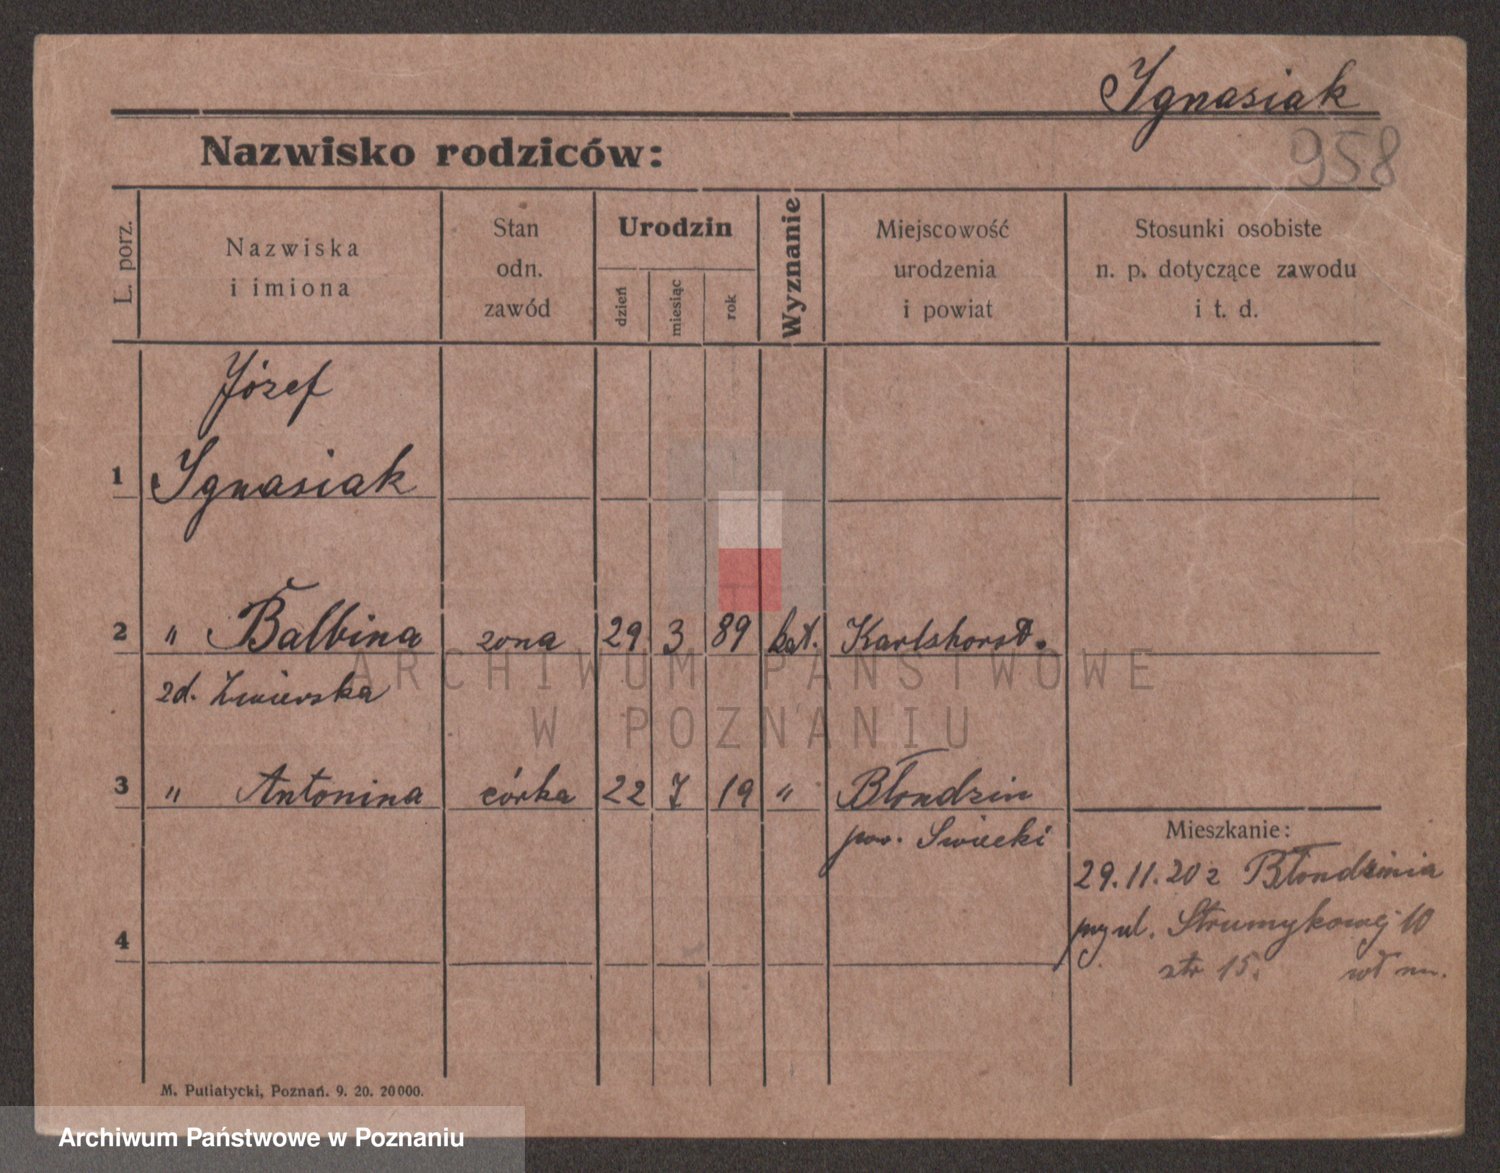 Ignasiak
958
Nazwisko rodziców:
L. porz.
Nazwiska
i imiona
Stan
odn.
zawód
Urodzin
dzień
miesiąc
rok
Wyznanie
Miejscowość
urodzenia
i powiat
Stosunki osobiste
n. p. dotyczące zawodu
i t. d.
Józef
1 Ignasiak
2 " Balbina zona 29 3 89 kat. Karlshorst.
zd.
3 " Antonina córka 22 7 19 " Błondzin
pow. Swiecki
Mieszkanie:
29.11.20 z Błondzinia
przy ul. Strumykowej 10
4
str 15. wł
M. Putiatycki, Poznań. 9. 20. 20000.
ARCHIWUM PAŃSTWOWE
W POZNANIU
Archiwum Państwowe w Poznaniu